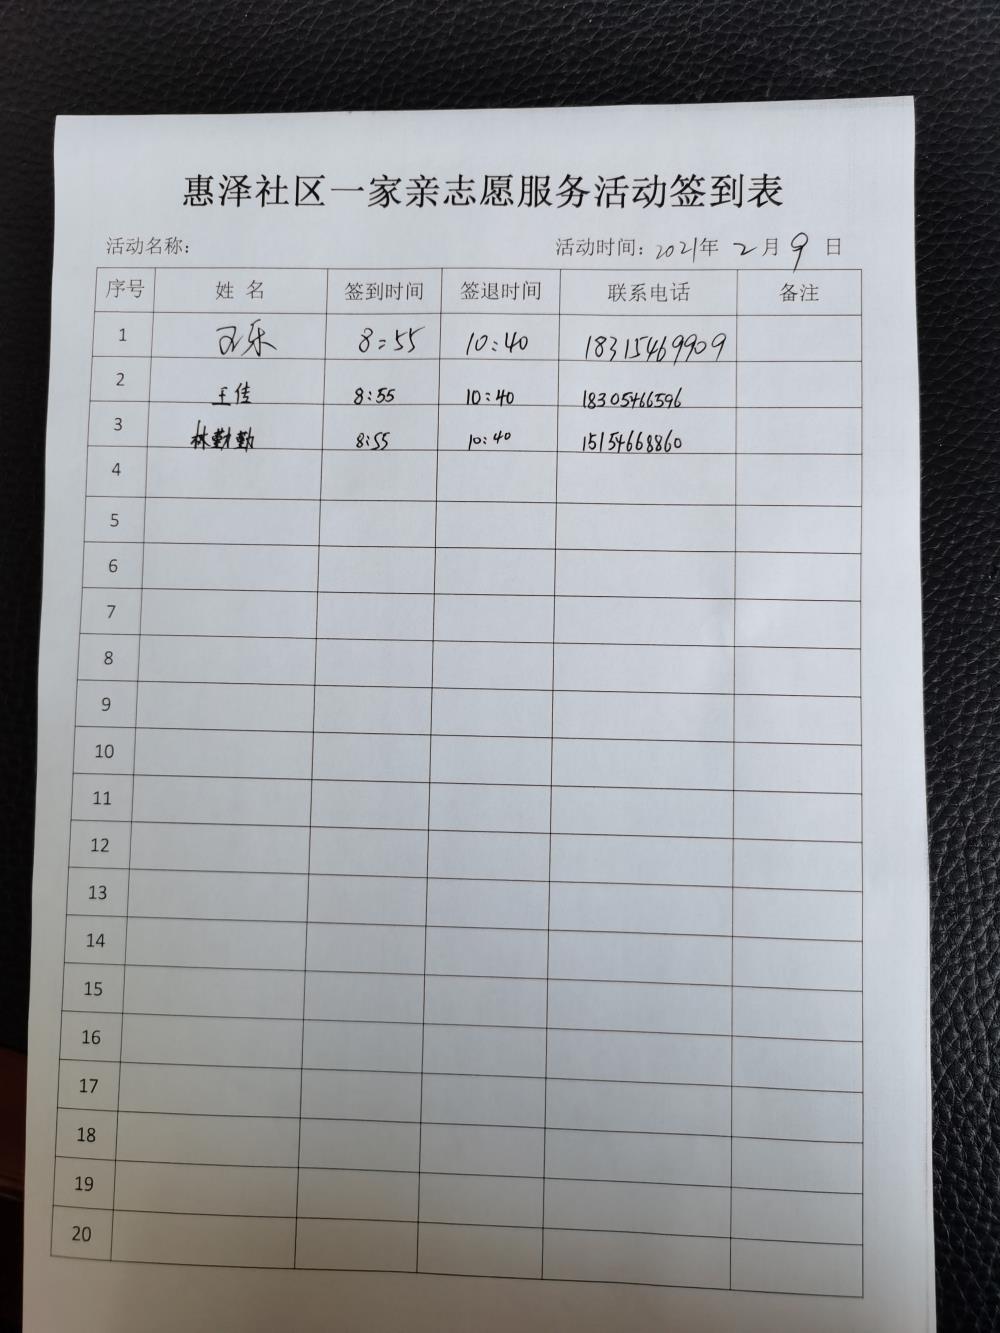 惠泽社区一家亲志愿服务活动签到表
活动名称: 活动时间: 2021年 2 月 9 日
序号 姓 名 签到时间 签退时间 联系电话 备注
1 王乐 8:55 10:40 18315469909
2 王佳 8:55 10:40 18305466596
3 林勤勤 8:55 10:40 15154668860
4
5
6
7
8
9
10
11
12
13
14
15
16
17
18
19
20